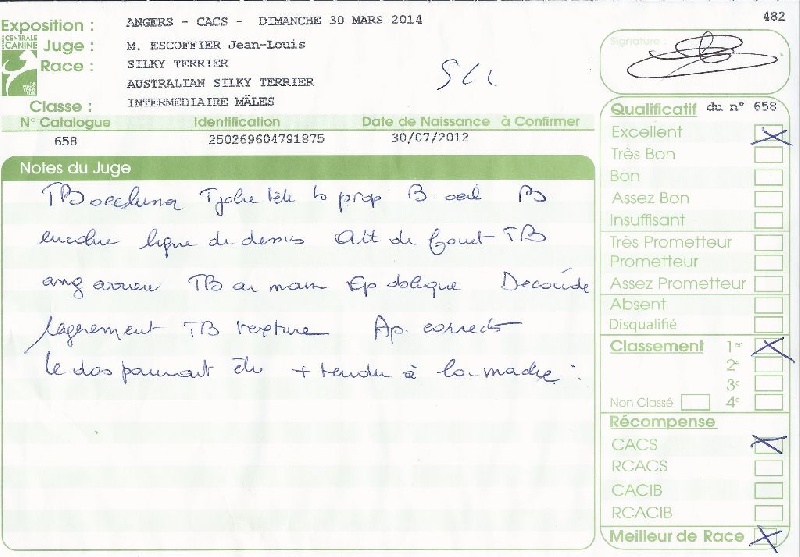 Exposition : ANGERS - CACS - DIMANCHE 30 MARS 2014
482
CENTRALE CANINE
Juge : M. ESCOFFIER Jean-Louis
Race : SILKY TERRIER
AUSTRALIAN SILKY TERRIER
Classe : INTERMEDIAIRE MÂLES
Signature :
N° Catalogue Identification Date de Naissance à Confirmer
658 250269604791875 30/07/2012
Notes du Juge
TB T jolie tête b prop B oeil B
encolure ligne de dessus Att de fouet TB
ang arrière TB au main Ep oblique Décousu
légèrement TB texture Ap. corrects
le dos pourrait être + tendu à la marche.
Qualificatif du n° 658
Excellent
Très Bon
Bon
Assez Bon
Insuffisant
Très Prometteur
Prometteur
Assez Prometteur
Absent
Disqualifié
Classement 1er
2e
3e
Non Classé 4e
Récompense
CACS
RCACS
CACIB
RCACIB
Meilleur de Race